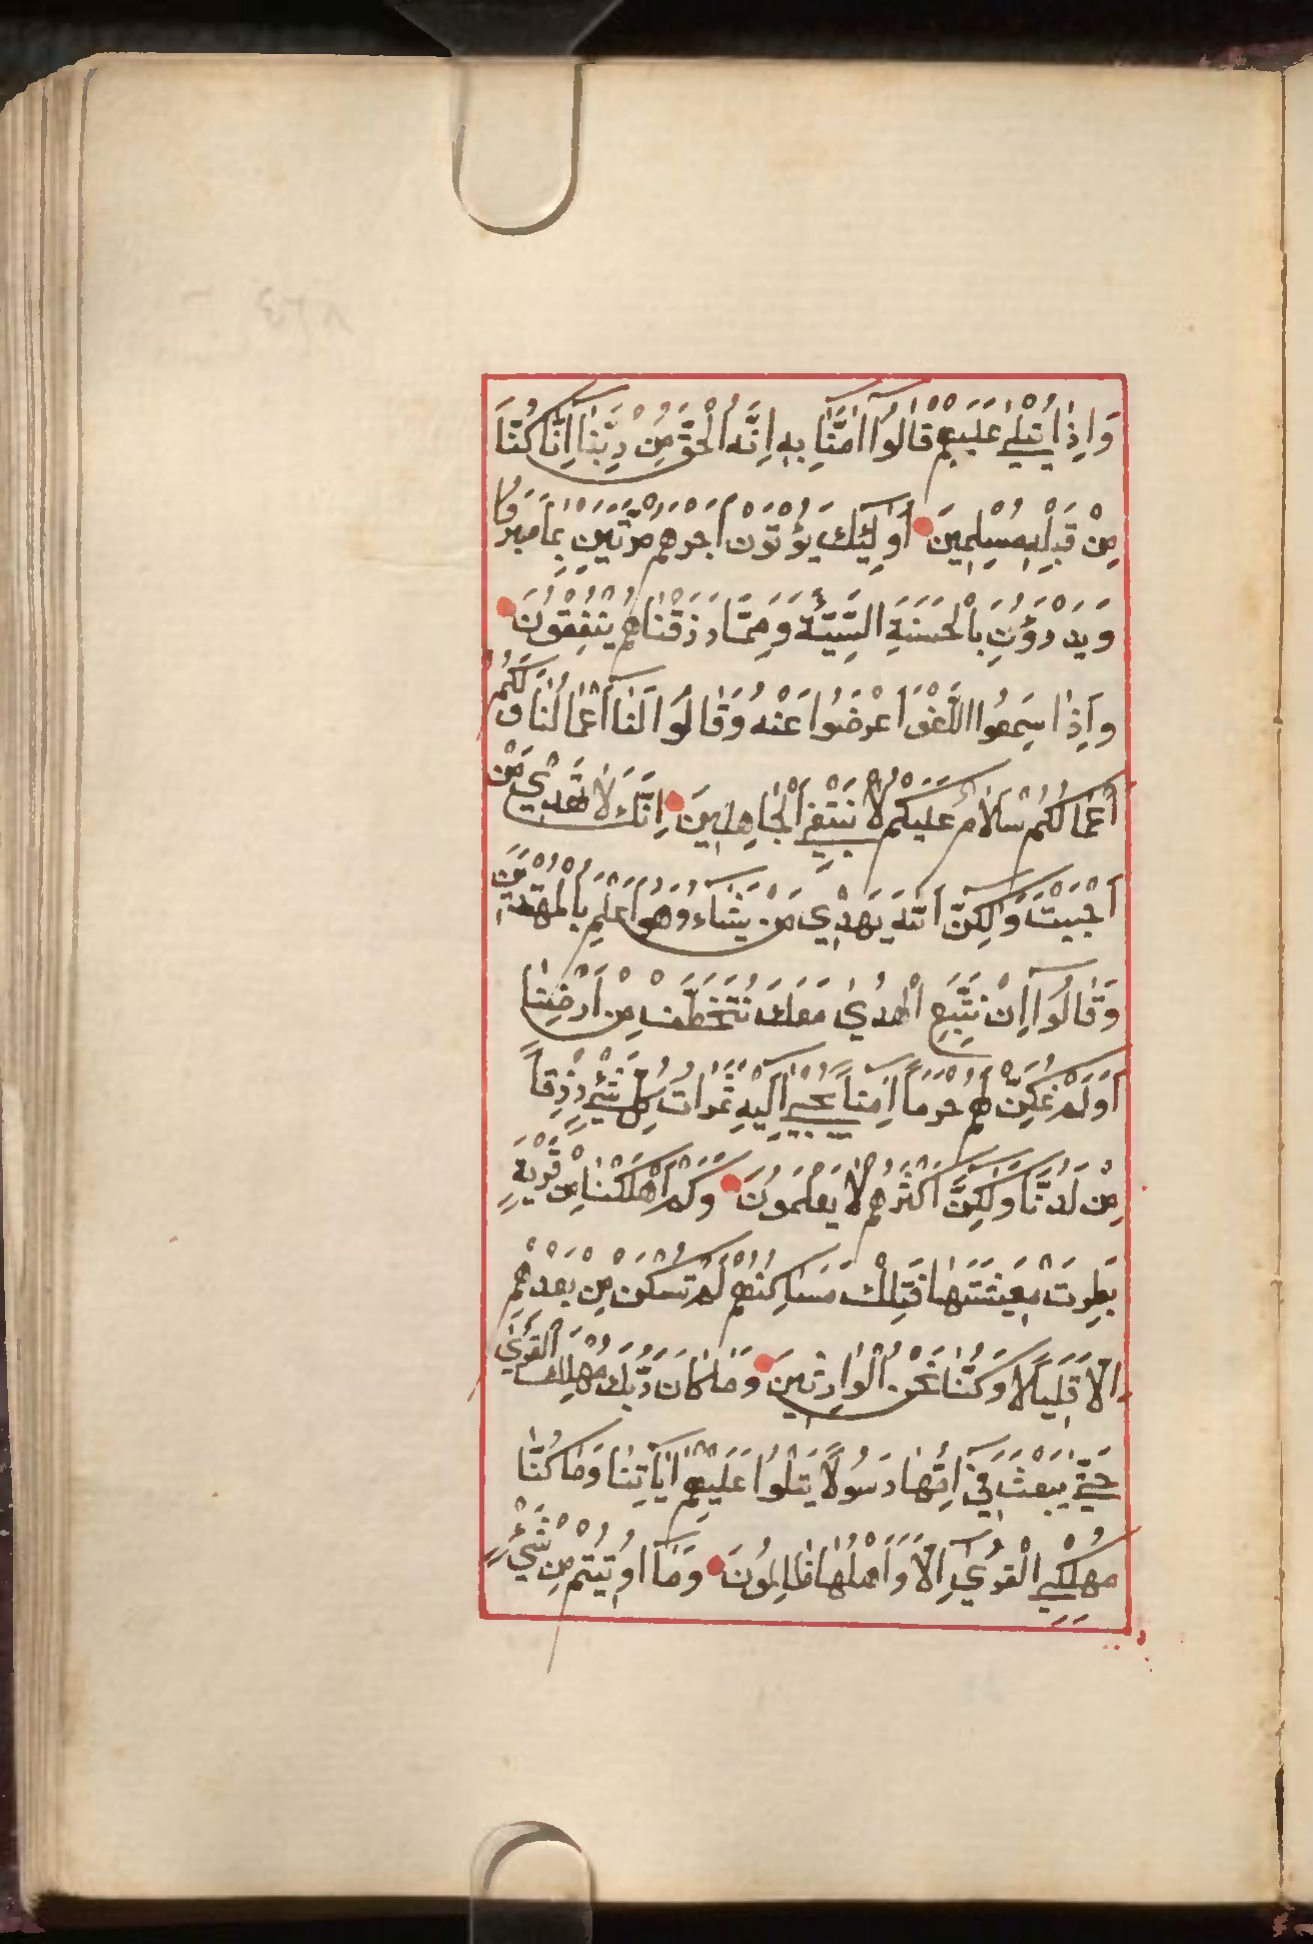 وَاِذٰا يُتْلٰي عَلَيْهِمْ قٰالُوٓا اٰمَنَّا بِهِ اِنَّهُ الْحَقُّ مِنْ رَبِّنٰا اِنّٰا كُنّٰا
مِنْ قَبْلِهِ مُسْلِمِينَ اُولٰٓئِكَ يُؤْتَوْنَ اَجْرَهُمْ مَرَّتَيْنِ بِمٰا صَبَرُوا
وَيَدْرَؤُنَ بِالْحَسَنَةِ السَّيِّئَةَ وَمِمّٰا رَزَقْنٰاهُمْ يُنْفِقُونَ
وَاِذٰا سَمِعُوا اللَّغْوَ اَعْرَضُوا عَنْهُ وَقٰالُوا لَنٰٓا اَعْمٰالُنٰا وَلَكُمْ
اَعْمٰالُكُمْ سَلاٰمٌ عَلَيْكُمْ لاٰ نَبْتَغِي الْجٰاهِلِينَ اِنَّكَ لاٰ تَهْدِي مَنْ
اَحْبَبْتَ وَلٰكِنَّ اللّٰهَ يَهْدِي مَنْ يَشٰٓاءُ وَهُوَ اَعْلَمُ بِالْمُهْتَدِينَ
وَقٰالُوٓا اِنْ نَتَّبِعِ الْهُدٰي مَعَكَ نُتَخَطَّفْ مِنْ اَرْضِنٰا
اَوَلَمْ نُمَكِّنْ لَهُمْ حَرَمًا اٰمِنًا يُجْبٰٓي اِلَيْهِ ثَمَرٰاتُ كُلِّ شَيْءٍ رِزْقًا
مِنْ لَدُنّٰا وَلٰكِنَّ اَكْثَرَهُمْ لاٰ يَعْلَمُونَ وَكَمْ اَهْلَكْنٰا مِنْ قَرْيَةٍ
بَطِرَتْ مَعِيشَتَهٰا فَتِلْكَ مَسٰاكِنُهُمْ لَمْ تُسْكَنْ مِنْ بَعْدِهِمْ
اِلاّٰ قَلِيلاً وَكُنّٰا نَحْنُ الْوٰارِثِينَ وَمٰا كٰانَ رَبُّكَ مُهْلِكَ الْقُرٰي
حَتّٰي يَبْعَثَ فِيٓ اُمِّهٰا رَسُولاً يَتْلُوا عَلَيْهِمْ اٰيٰاتِنٰا وَمٰا كُنّٰا
مُهْلِكِي الْقُرٰيٓ اِلاّٰ وَاَهْلُهٰا ظٰالِمُونَ وَمٰٓا اُوتِيتُمْ مِنْ شَيْءٍ